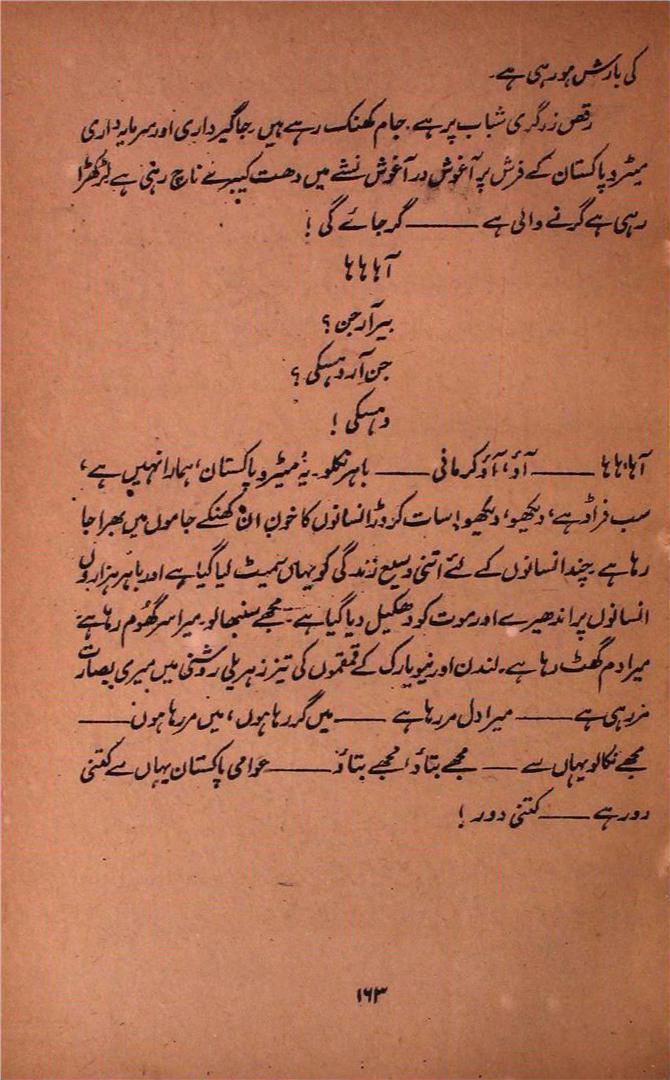 کی بارش ہو رہی ہے۔
رقص زرگری شباب پر ہے۔ جام کھنک رہے ہیں۔ جاگیرداری اور سرمایہ داری
میٹروپاکستان کے فرش پر آغوش در آغوش نشے میں دھت کیبرے ناچ رہی ہے لڑکھڑا
رہی ہے گرنے والی ہے ——— گر جائے گی!
آہاہاہا
بیر آر جن؟
جن آر وہسکی؟
وہسکی!
آہا، ہاہا ——— آؤ، آؤ کرمانی ——— باہر نکلو۔ یہ میٹروپاکستان، ہمارا نہیں ہے،
سب فراڈ ہے، دیکھو، دیکھو! سات کروڑ انسانوں کا خون ان کھنکے جاموں میں بھرا جا
رہا ہے چند انسانوں کے لئے اتنی وسیع زندگی کو یہاں سمیٹ لیا گیا ہے اور باہر ہزاروں
انسانوں پر اندھیرے اور موت کو دھکیل دیا گیا ہے۔ مجھے سنبھالو۔ میرا سر گھوم رہا ہے
میرا دم گھٹ رہا ہے۔ لندن اور نیویارک کے قمقموں کی تیز زہریلی روشنی میں میری بصارت
مر رہی ہے ——— میرا دل مر رہا ہے ——— میں گر رہا ہوں، میں مر رہا ہوں ———
مجھے نکالو یہاں سے —— مجھے بتاؤ، مجھے بتاؤ ——— عوامی پاکستان یہاں سے کتنی
دور ہے ——— کتنی دور!
۱۶۳